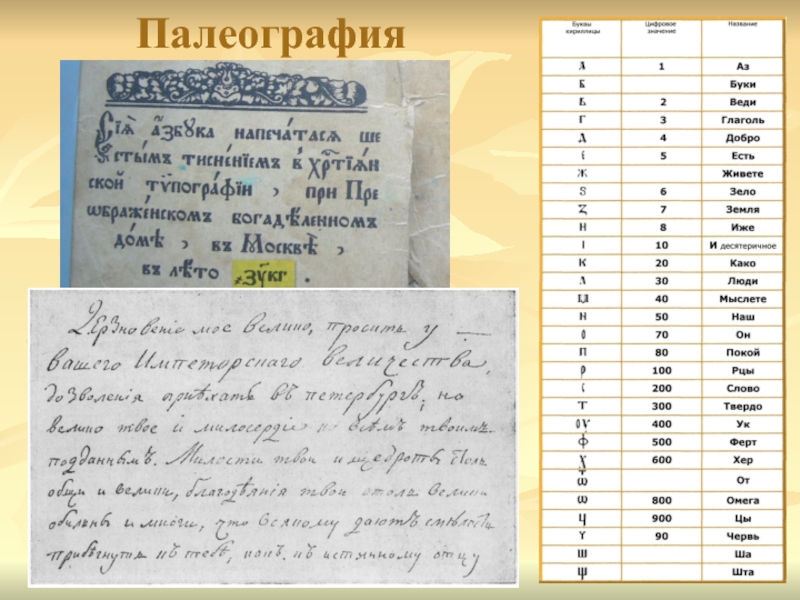 Палеография
Сїѧ҇ а҆збука напеча́тасѧ ше
сты́мъ тисне́нїемъ в хрⷭ҇тїѧ́н
ской тѷпогра́фїи , при Пре
ѡбраже́нском богадѣ́ленном
до́мѣ , въ Москвѣ̀ ,
въ лѣ́то ҂зу҃кг .
Дерзновенiе мое велико, просить у
вашего Императорскаго величества,
дозволенiя приѣхать въ петербургъ, но
велико твое и милосердiе ко всѣмъ твоимъ
подданнымъ. Милости твои и щедроты столь
общи и велики, благодѣянiя твои столь велики
обильны и многи, что всякому даютъ смѣлость
прибѣгнуть къ тебѣ, какъ къ истинному отцу
Буквы кириллицы Цифровое значение Название
А 1 Аз
Б Буки
В 2 Веди
Г 3 Глаголь
Д 4 Добро
Є 5 Есть
Ж Живете
Ѕ 6 Зело
Z 7 Земля
И 8 Иже
І 10 И десятеричное
К 20 Како
Л 30 Люди
М 40 Мыслете
N 50 Наш
О 70 Он
П 80 Покой
Р 100 Рцы
С 200 Слово
Т 300 Твердо
ОУ 400 Ук
Ф 500 Ферт
Х 600 Хер
Ѿ От
Ѡ 800 Омега
Ц 900 Цы
Ч 90 Червь
Ш Ша
Щ Шта